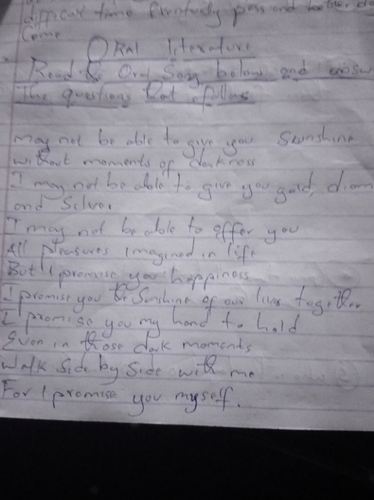 difficult time Eventually pass and better da
Come
Oral literature
Read & Oral Song below and answ
The questions that follows
may not be able to give you Sunshine
without moments of darkness
I may not be able to give you gold, diam
and Silver
I may not be able to offer you
All pleasures imagined in life
But I promise you happiness
I promise you the Sunshine of our lives together
I promise you my hand to hold
Even in those dark moments
Walk Side by Side with me
For I promise you myself.